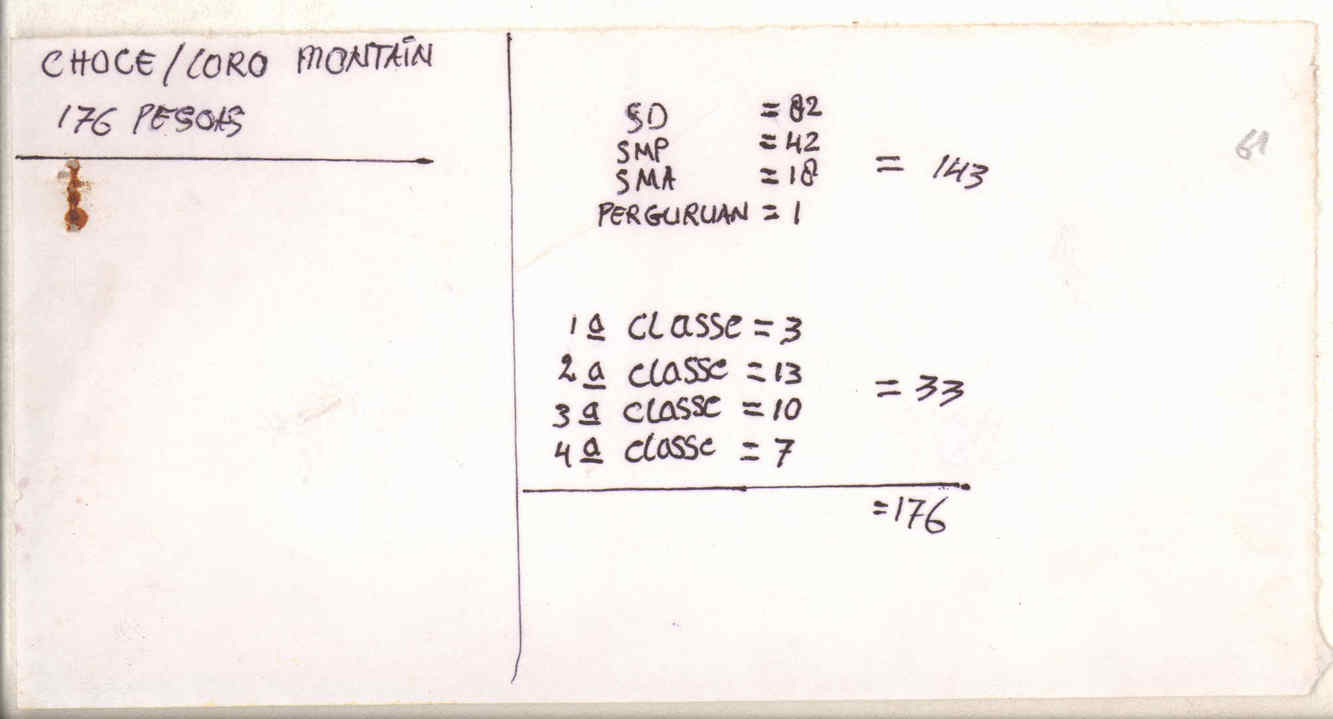 CHOCE/LORO MONTAIN
176 PESOAS
SD = 82
SMP = 42
SMA = 18
= 143
PERGURUAN = 1
61
1ª classe = 3
2ª classe = 13
3ª classe = 10
4ª classe = 7
= 33
=176